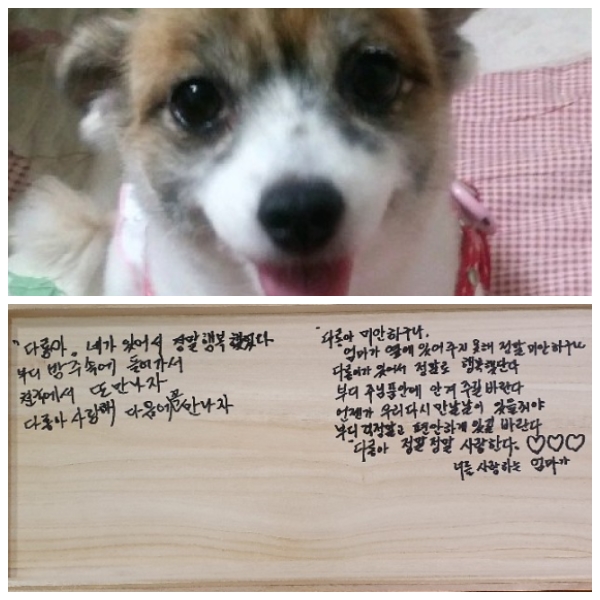 "다롱아. 네가 있어서 정말 행복했었다
부디 방주 속에 들어가서
천국에서 또 만나자
다롱아 사랑해 다음에 꼭 만나자
"다롱아 미안하구나.
엄마가 옆에 있어주지 못해 정말 미안하구나
다롱이가 있어서 정말로 행복했단다
부디 주님품안에 안겨 주길 바란다
언젠가 우리 다시 만날날이 있을꺼야
부디 걱정말고 편안하게 있길 바란다
"다롱아 정말 정말 사랑한다. ♡♡♡
너를 사랑하는 엄마가